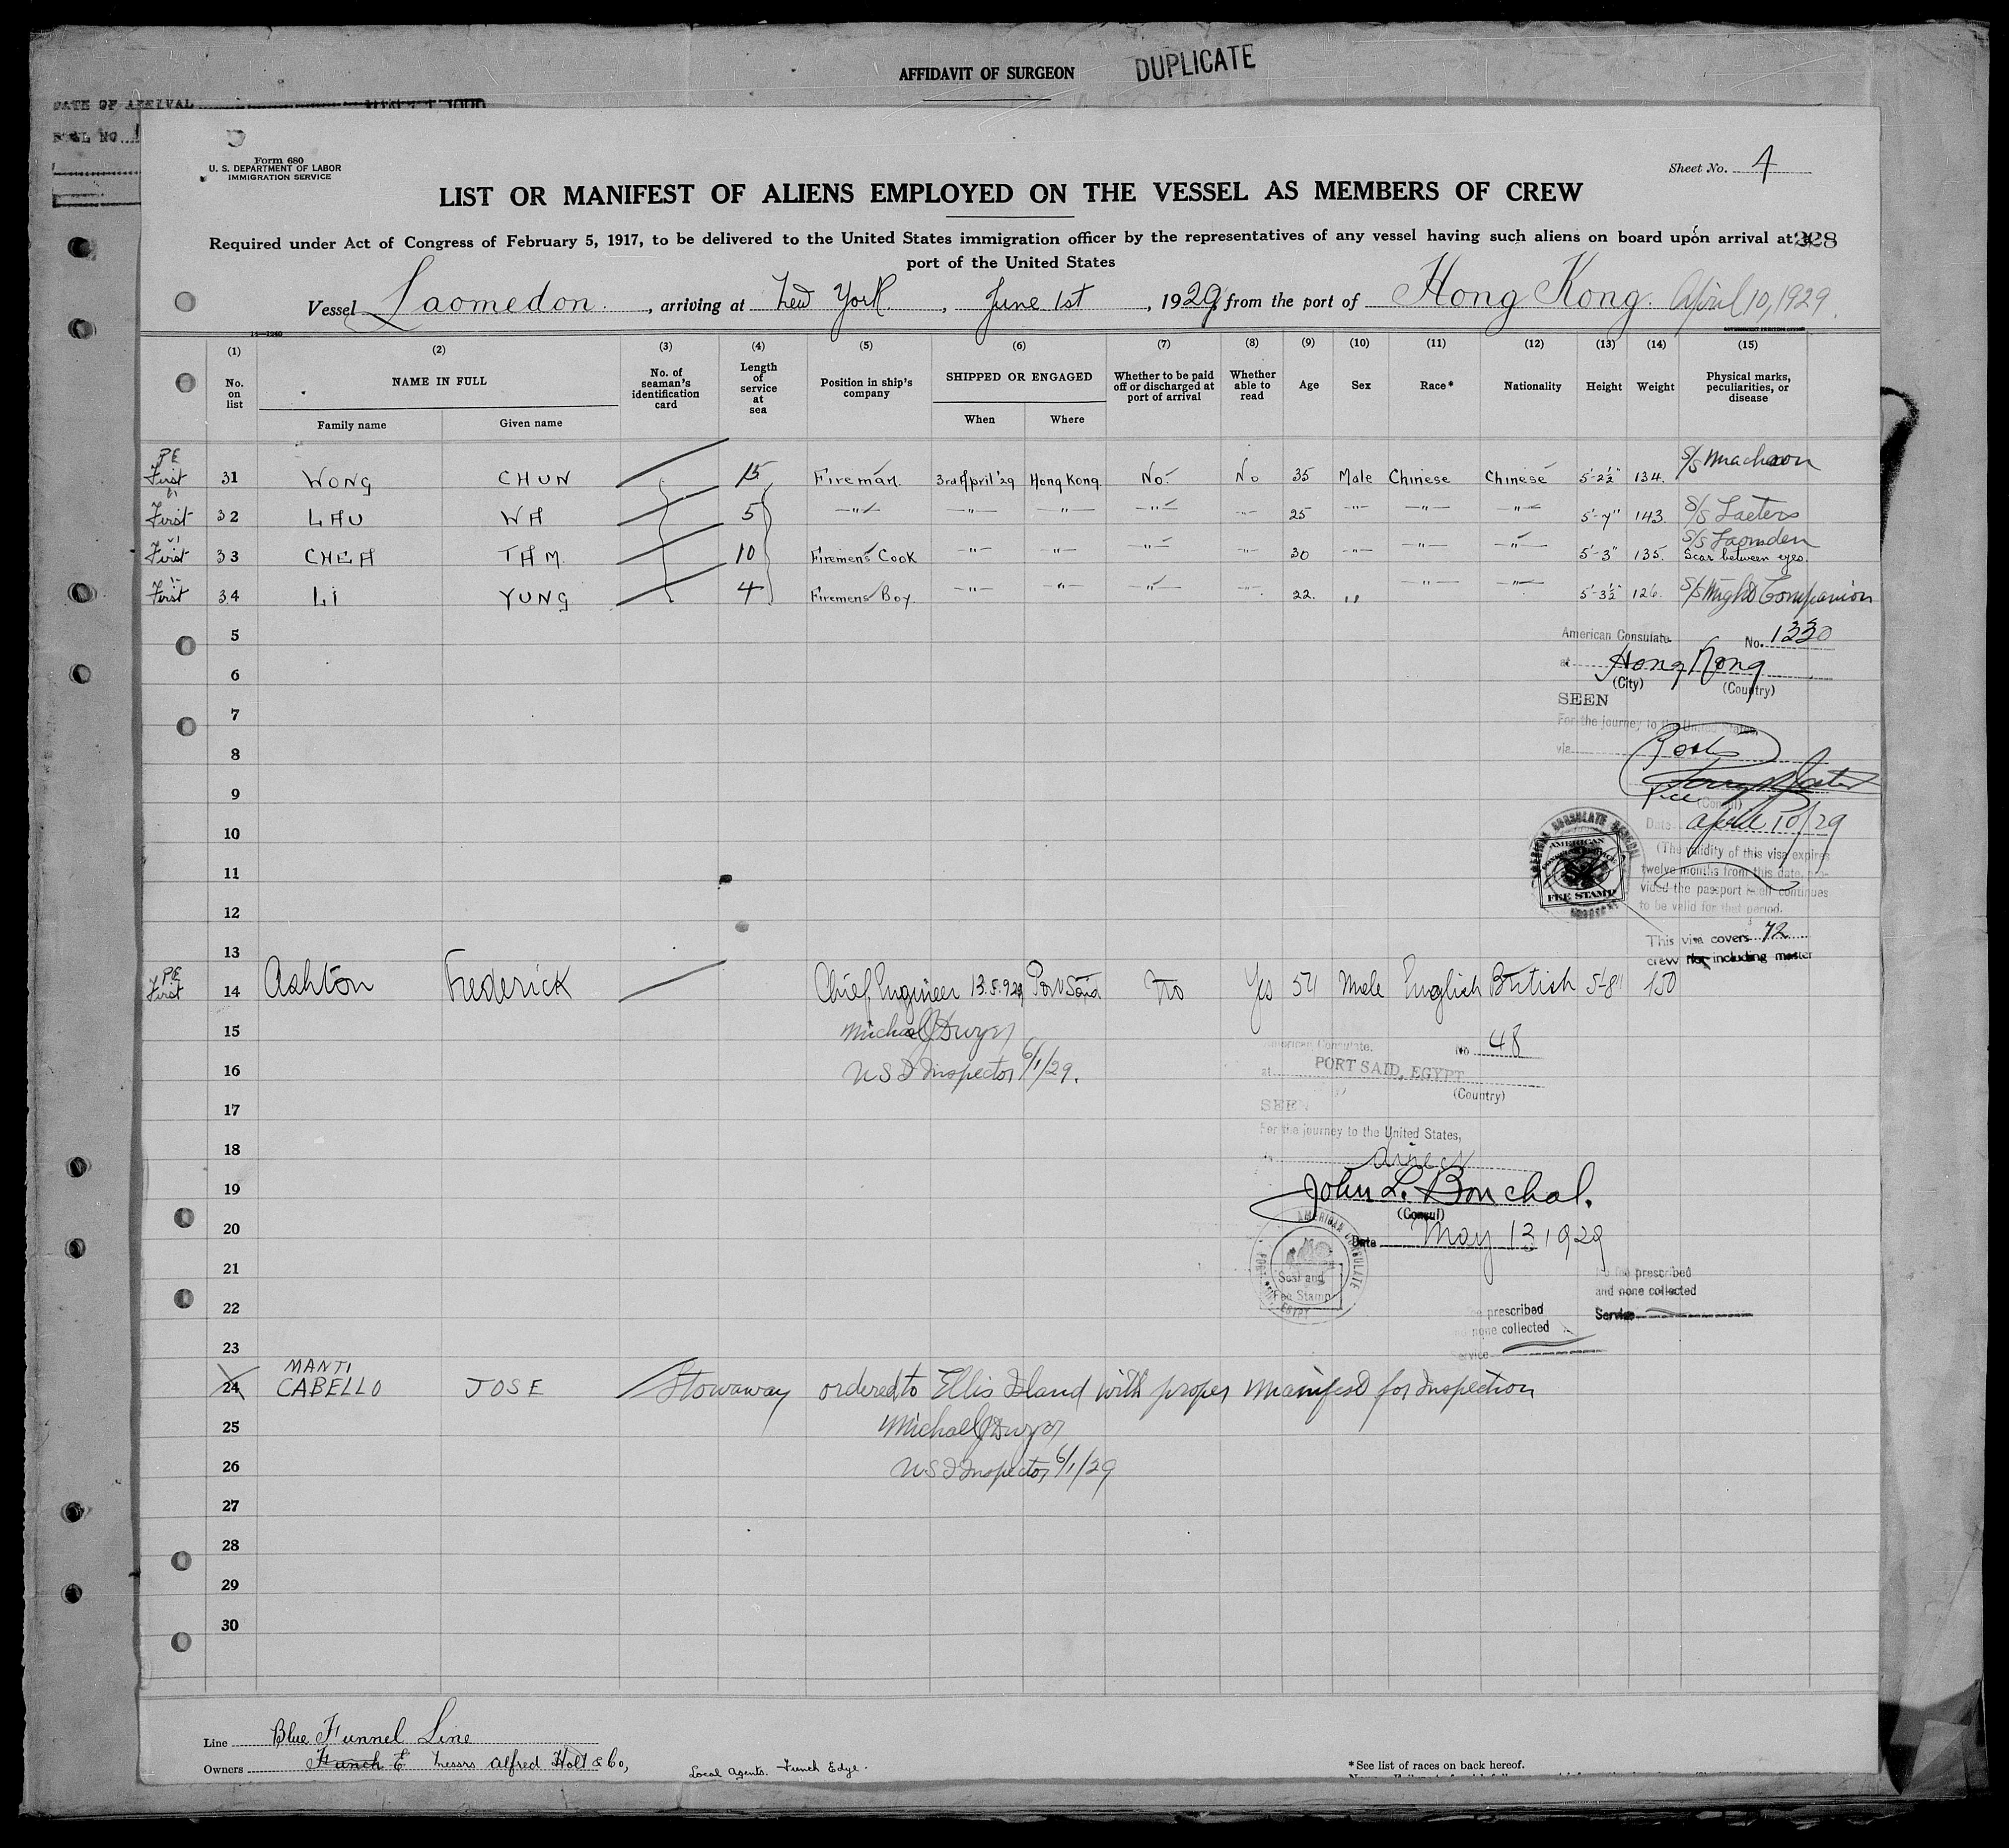 AFFIDAVIT OF SURGEON
DUPLICATE
DATE OF ARRIVAL
Form 680
U. S. DEPARTMENT OF LABOR
IMMIGRATION SERVICE
Sheet No. 4
LIST OR MANIFEST OF ALIENS EMPLOYED ON THE VESSEL AS MEMBERS OF CREW
Required under Act of Congress of February 5, 1917, to be delivered to the United States immigration officer by the representatives of any vessel having such aliens on board upon arrival at a
328
port of the United States
Vessel Laomedon, arriving at New York, June 1st, 1929, from the port of Hong Kong. April 10, 1929.
14—1240
GOVERNMENT PRINTING OFFICE
(1) (2) (3) (4) (5) (6) (7) (8) (9) (10) (11) (12) (13) (14) (15)
No. on list
NAME IN FULL
Family name
Given name
No. of seaman's identification card
Length of service at sea
Position in ship's company
SHIPPED OR ENGAGED
When
Where
Whether to be paid off or discharged at port of arrival
Whether able to read
Age
Sex
Race*
Nationality
Height
Weight
Physical marks, peculiarities, or disease
PE
First 31 WONG CHUN 15 Fireman 3rd April '29 Hong Kong. No. No 35 Male Chinese Chinese 5'-2½" 134. S/S Machaon
First 32 LAU WA 5 —"— —"— —"— —"— —"— 25 —"— —"— —"— 5'-7" 143. S/S
First 33 CHEA TAM. 10 Firemens Cook —"— —"— —"— —"— 30 —"— —"— —"— 5'-3" 135. S/S
Scar between eyes.
First 34 LI YUNG 4 Firemens Boy. —"— " —"— —"— 22. ,, —"— —"— 5'-3½" 126. S/S
American Consulate. No. 1330
5
at Hong Kong
6
(City) (Country)
SEEN
7
For the journey to the United States,
8
via
9
(Consul)
10
Date April 10/29
AMERICAN CONSULATE GENERAL
AMERICAN
CONSULAR SERVICE
FEE STAMP
(The validity of this visa expires
11
twelve months from this date, pro-
vided the passport itself continues
12
to be valid for that period.
This visa covers 72
13
crew not including master
PE
First 14 Ashton Frederick Chief Engineer 13.5.929 Port Said No Yes 54 Male English British 5'-8" 150
15
Michael J Dwyer
American Consulate. No 48
16
U S I Inspector 6/1/29.
at PORT SAID, EGYPT
(Country)
17
SEEN
For the journey to the United States,
18
direct
19
John L. Bouchal.
(Consul)
20
Date May 13 1929
AMERICAN CONSULATE
PORT SAID EGYPT
21
Seal and
Fee Stamp
No fee prescribed
and none collected
22
Service
fee prescribed
none collected
23
Service
MANTI
24 CABELLO JOSE Stowaway ordered to Ellis Island with proper manifest for inspection
25
Michael J Dwyer
26
U S I Inspector 6/1/29
27
28
29
30
Line Blue Funnel Line
Owners Funch E Messrs Alfred Holt & Co, Local Agents. Funch Edye.
*See list of races on back hereof.